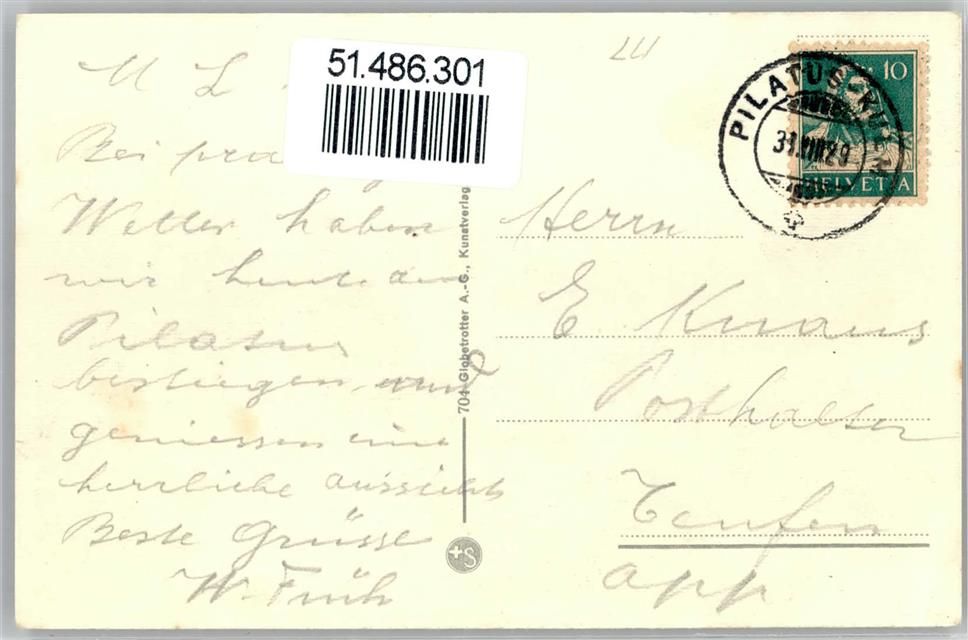 51.486.301
M L
Bei
Wetter haben
wir heute den
Pilatus
bestiegen und
geniessen eine
herrliche Aussicht
Beste Grüsse
W. Früh
704 Globetrotter A.-G., Kunstverlag
+S
PILATUS-KULM
31.VIII.29
10
HELVETIA
Herrn
E Knaus
Posthalter
Teufen
App